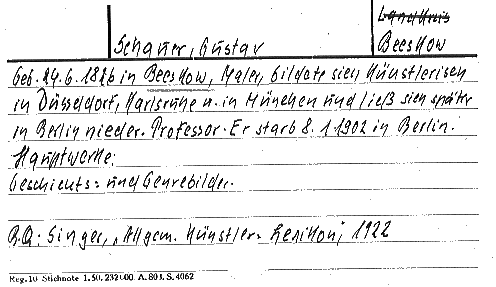 Landkreis
Schauer, Gustav
Beeskow
Geb. 24.6.1826 in Beeskow, Maler, bildete sich künstlerisch
in Düsseldorf, Karlsruhe u. in München und ließ sich später
in Berlin nieder. Professor. Er starb 8.1.1902 in Berlin.
Hauptwerke:
Geschichts= und Genrebilder.
Singer, „Allgem. Künstler-Lexikon", 1922
Reg. 10 Stichnote 1. 50. 232000. A. 801. S. 4062